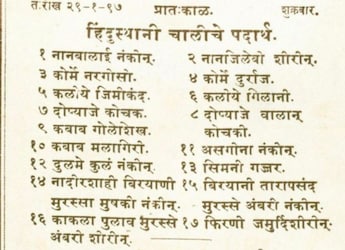 तारीख २९-१-९७ प्रातःकाळ. शुक्रवार.
हिंदुस्थानी चालीचे पदार्थ.
१ नानबालाई नंकीन्. २ नानजिलेबी शीरीन्.
३ कोर्मे नरगीसी. ४ कोर्मे दुर्राज.
५ कलीये जिमीकंद. ६ कलीये गिलानी.
७ दोप्याजे कोचक. ८ दोप्याजे वालान्
९ कबाब गोलेशिख. कोचकी.
१० कबाब मलागिरी. ११ असगीना नंकीन.
१२ दुलमे कुलं नंकीन. १३ सिमनी गज्जर.
१४ नादीरशाही बिरयाणी १५ बिरयानी तारापसंद
मुरस्सा मुषकी नंकीन. मुरस्से अंबरी नंकीन.
१६ काकला पुलाव मुरस्से १७ फिरणी जमुर्दिशीरीन.
अंबरी शीरीन.